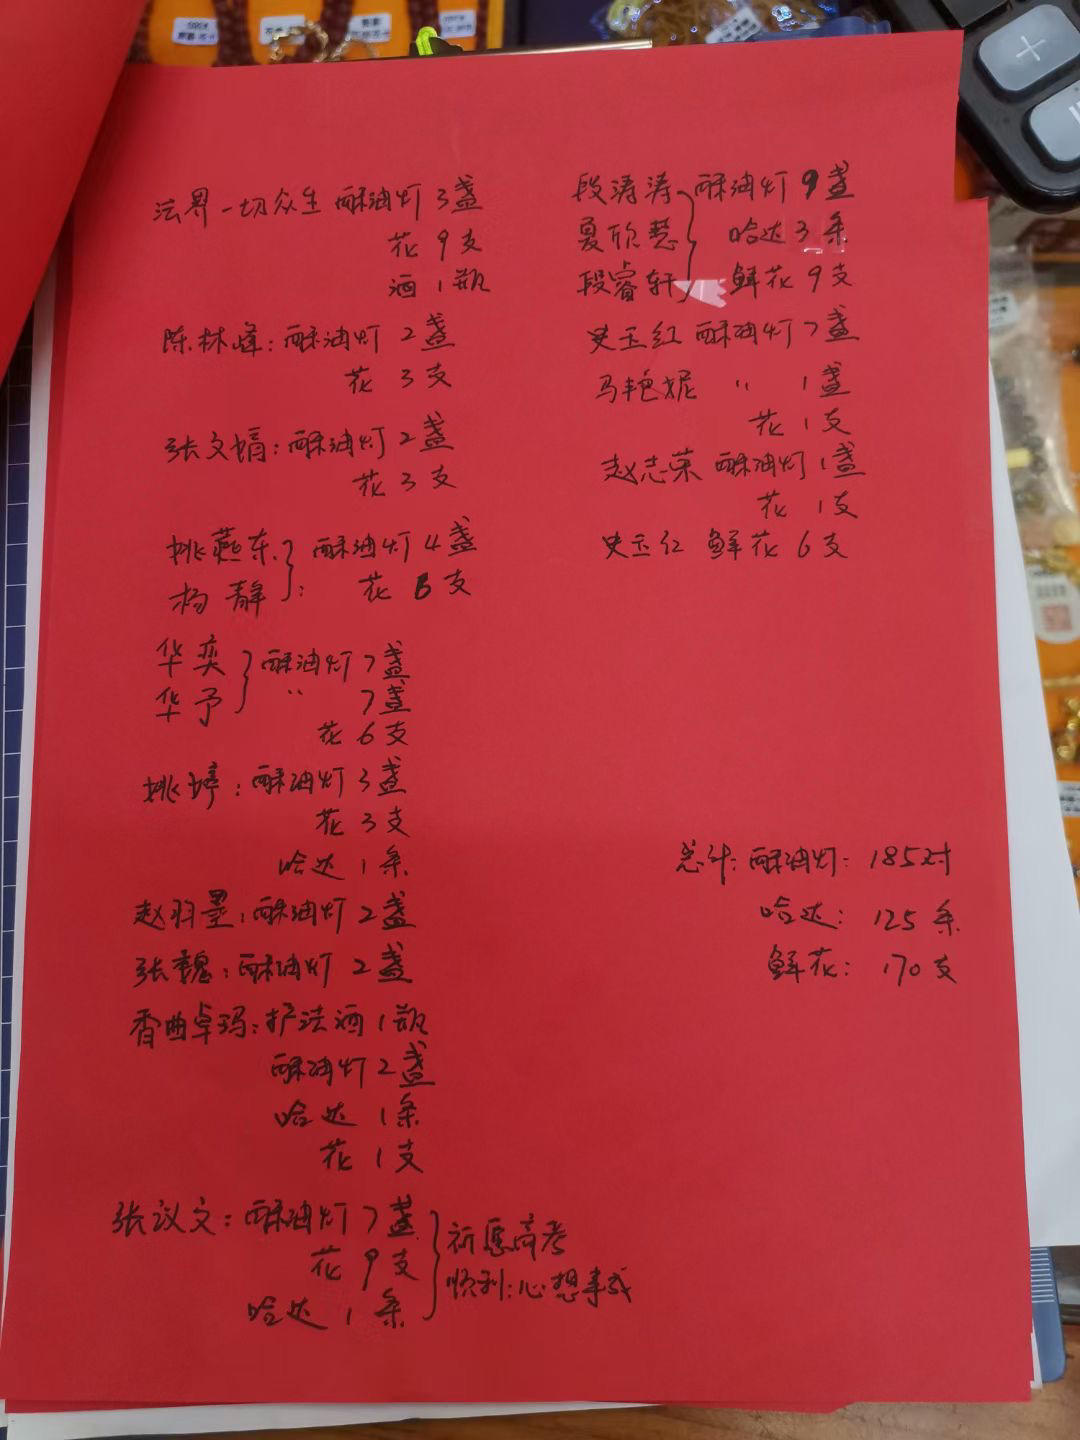 法界一切众生 酥油灯 3盏
花 9支
酒 1瓶
陈林峰：酥油灯 2盏
花 3支
张文娟：酥油灯 2盏
花 3支
姚燕东 } 酥油灯 4盏
杨静 } ： 花 6支
华奕 } 酥油灯 7盏
华予 } 〃 7盏
花 6支
姚婷：酥油灯 3盏
花 3支
哈达 1条
赵羽墨：酥油灯 2盏
张巍：酥油灯 2盏
香曲卓玛：护法酒 1瓶
酥油灯 2盏
哈达 1条
花 1支
张议文：酥油灯 7盏 } 祈愿高考
花 9支
哈达 1条 } 顺利：心想事成
段涛涛 } 酥油灯 9盏
夏欣慧 } 哈达 3条
段睿轩 } 鲜花 9支
史玉红 酥油灯 7盏
马艳妮 〃 1盏
花 1支
赵志荣 酥油灯 1盏
花 1支
史玉红 鲜花 6支
总计：酥油灯：185对
哈达：125条
鲜花：170支